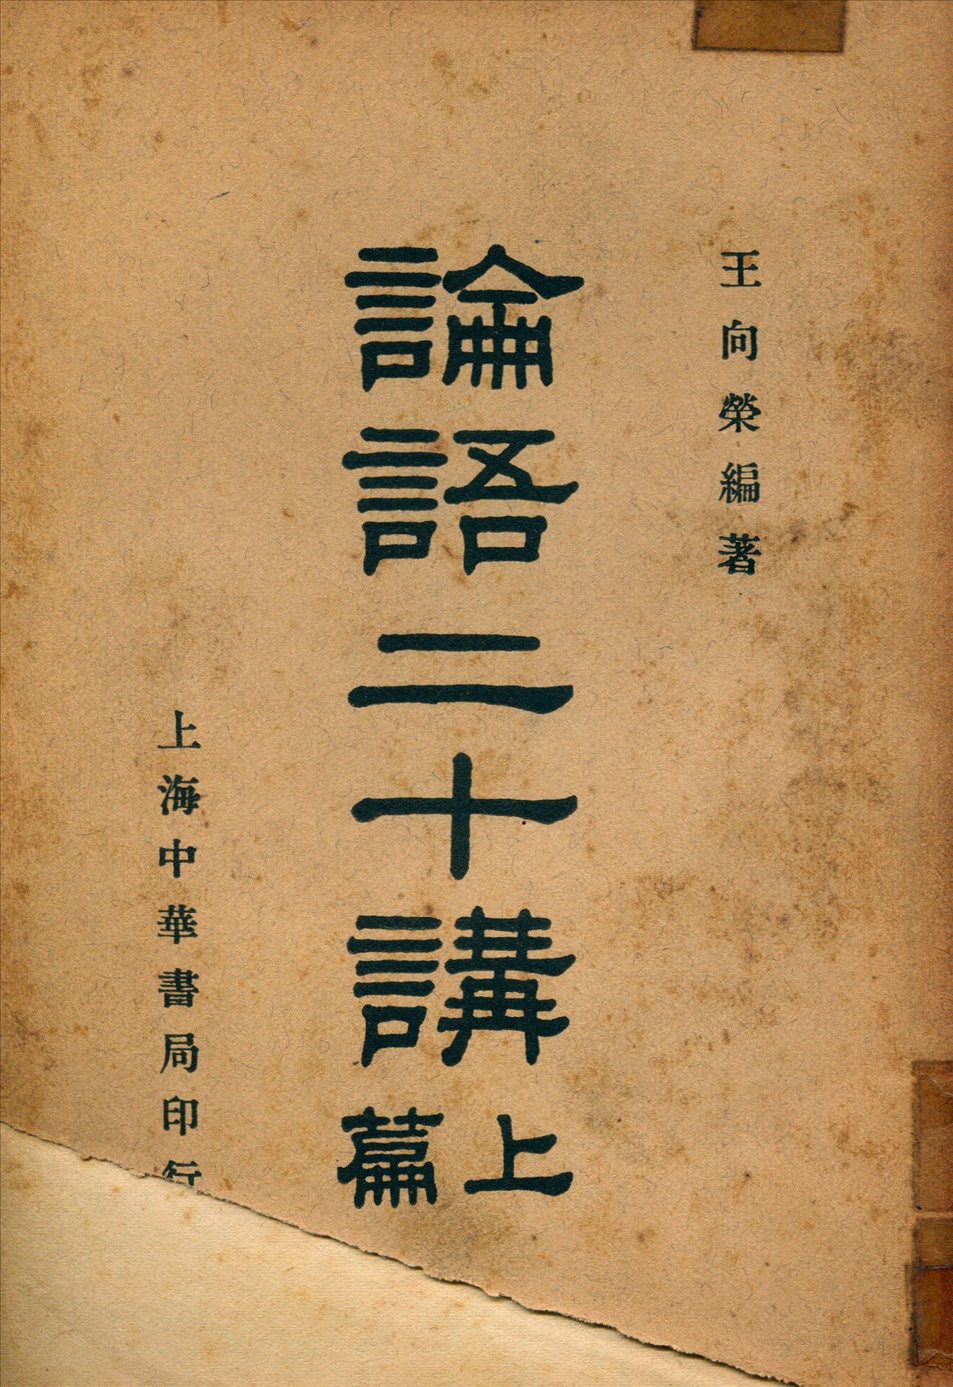 王向榮編著
論語二十講上篇
上海中華書局印行